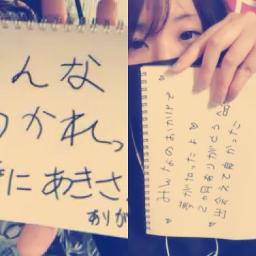 んな
つかれっ
にあきさ
ありが
みんなのおかげで
夢が叶ったよ
2ヶ月ありがとう
出会えて良かった